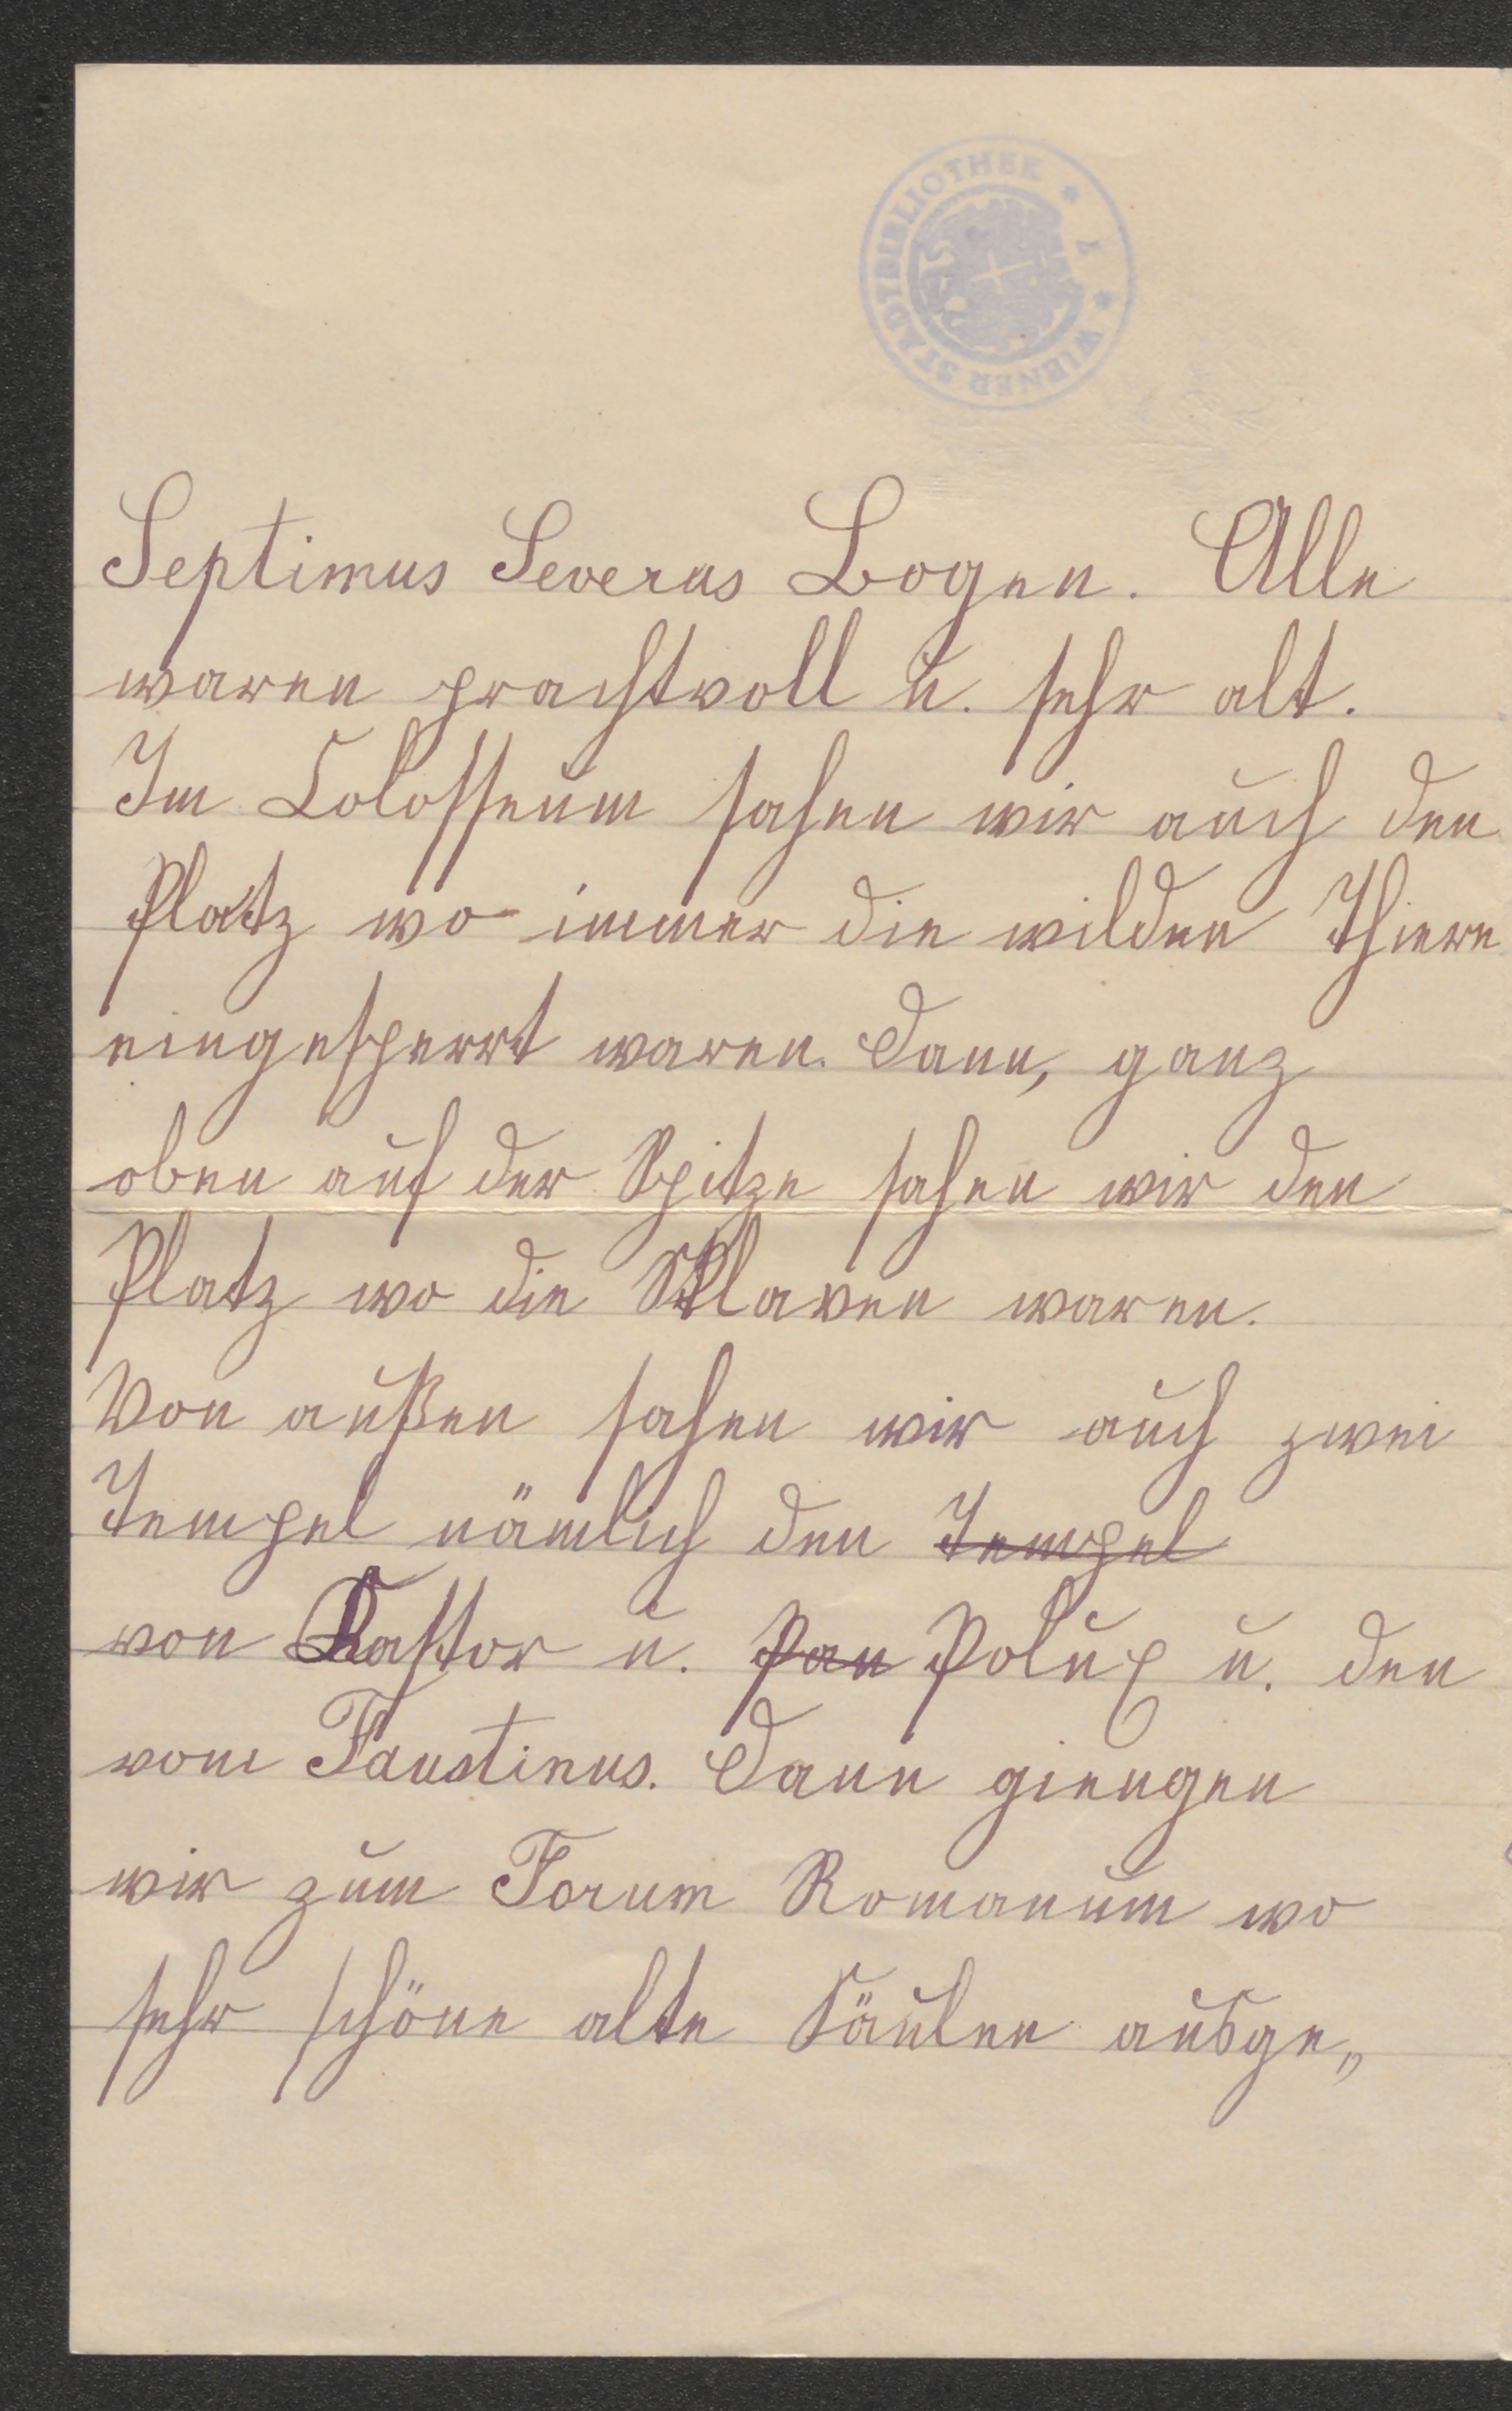 WIENER STADTBIBLIOTHEK
Septimus Severus Bogen. Alle
waren prachtvoll u. sehr alt.
Im Colosseum sahen wir auch den
Platz wo immer die wilden Thiere
eingesperrt waren. Dann, ganz
oben auf der Spitze sahen wir den
Platz wo die Sklaven waren.
Von außen sahen wir auch zwei
Tempel nämlich den Tempel
von Castor u. Pan Polux u. den
vom Faustinus. Dann giengen
wir zum Forum Romanum wo
sehr schöne alte Säulen ausge„